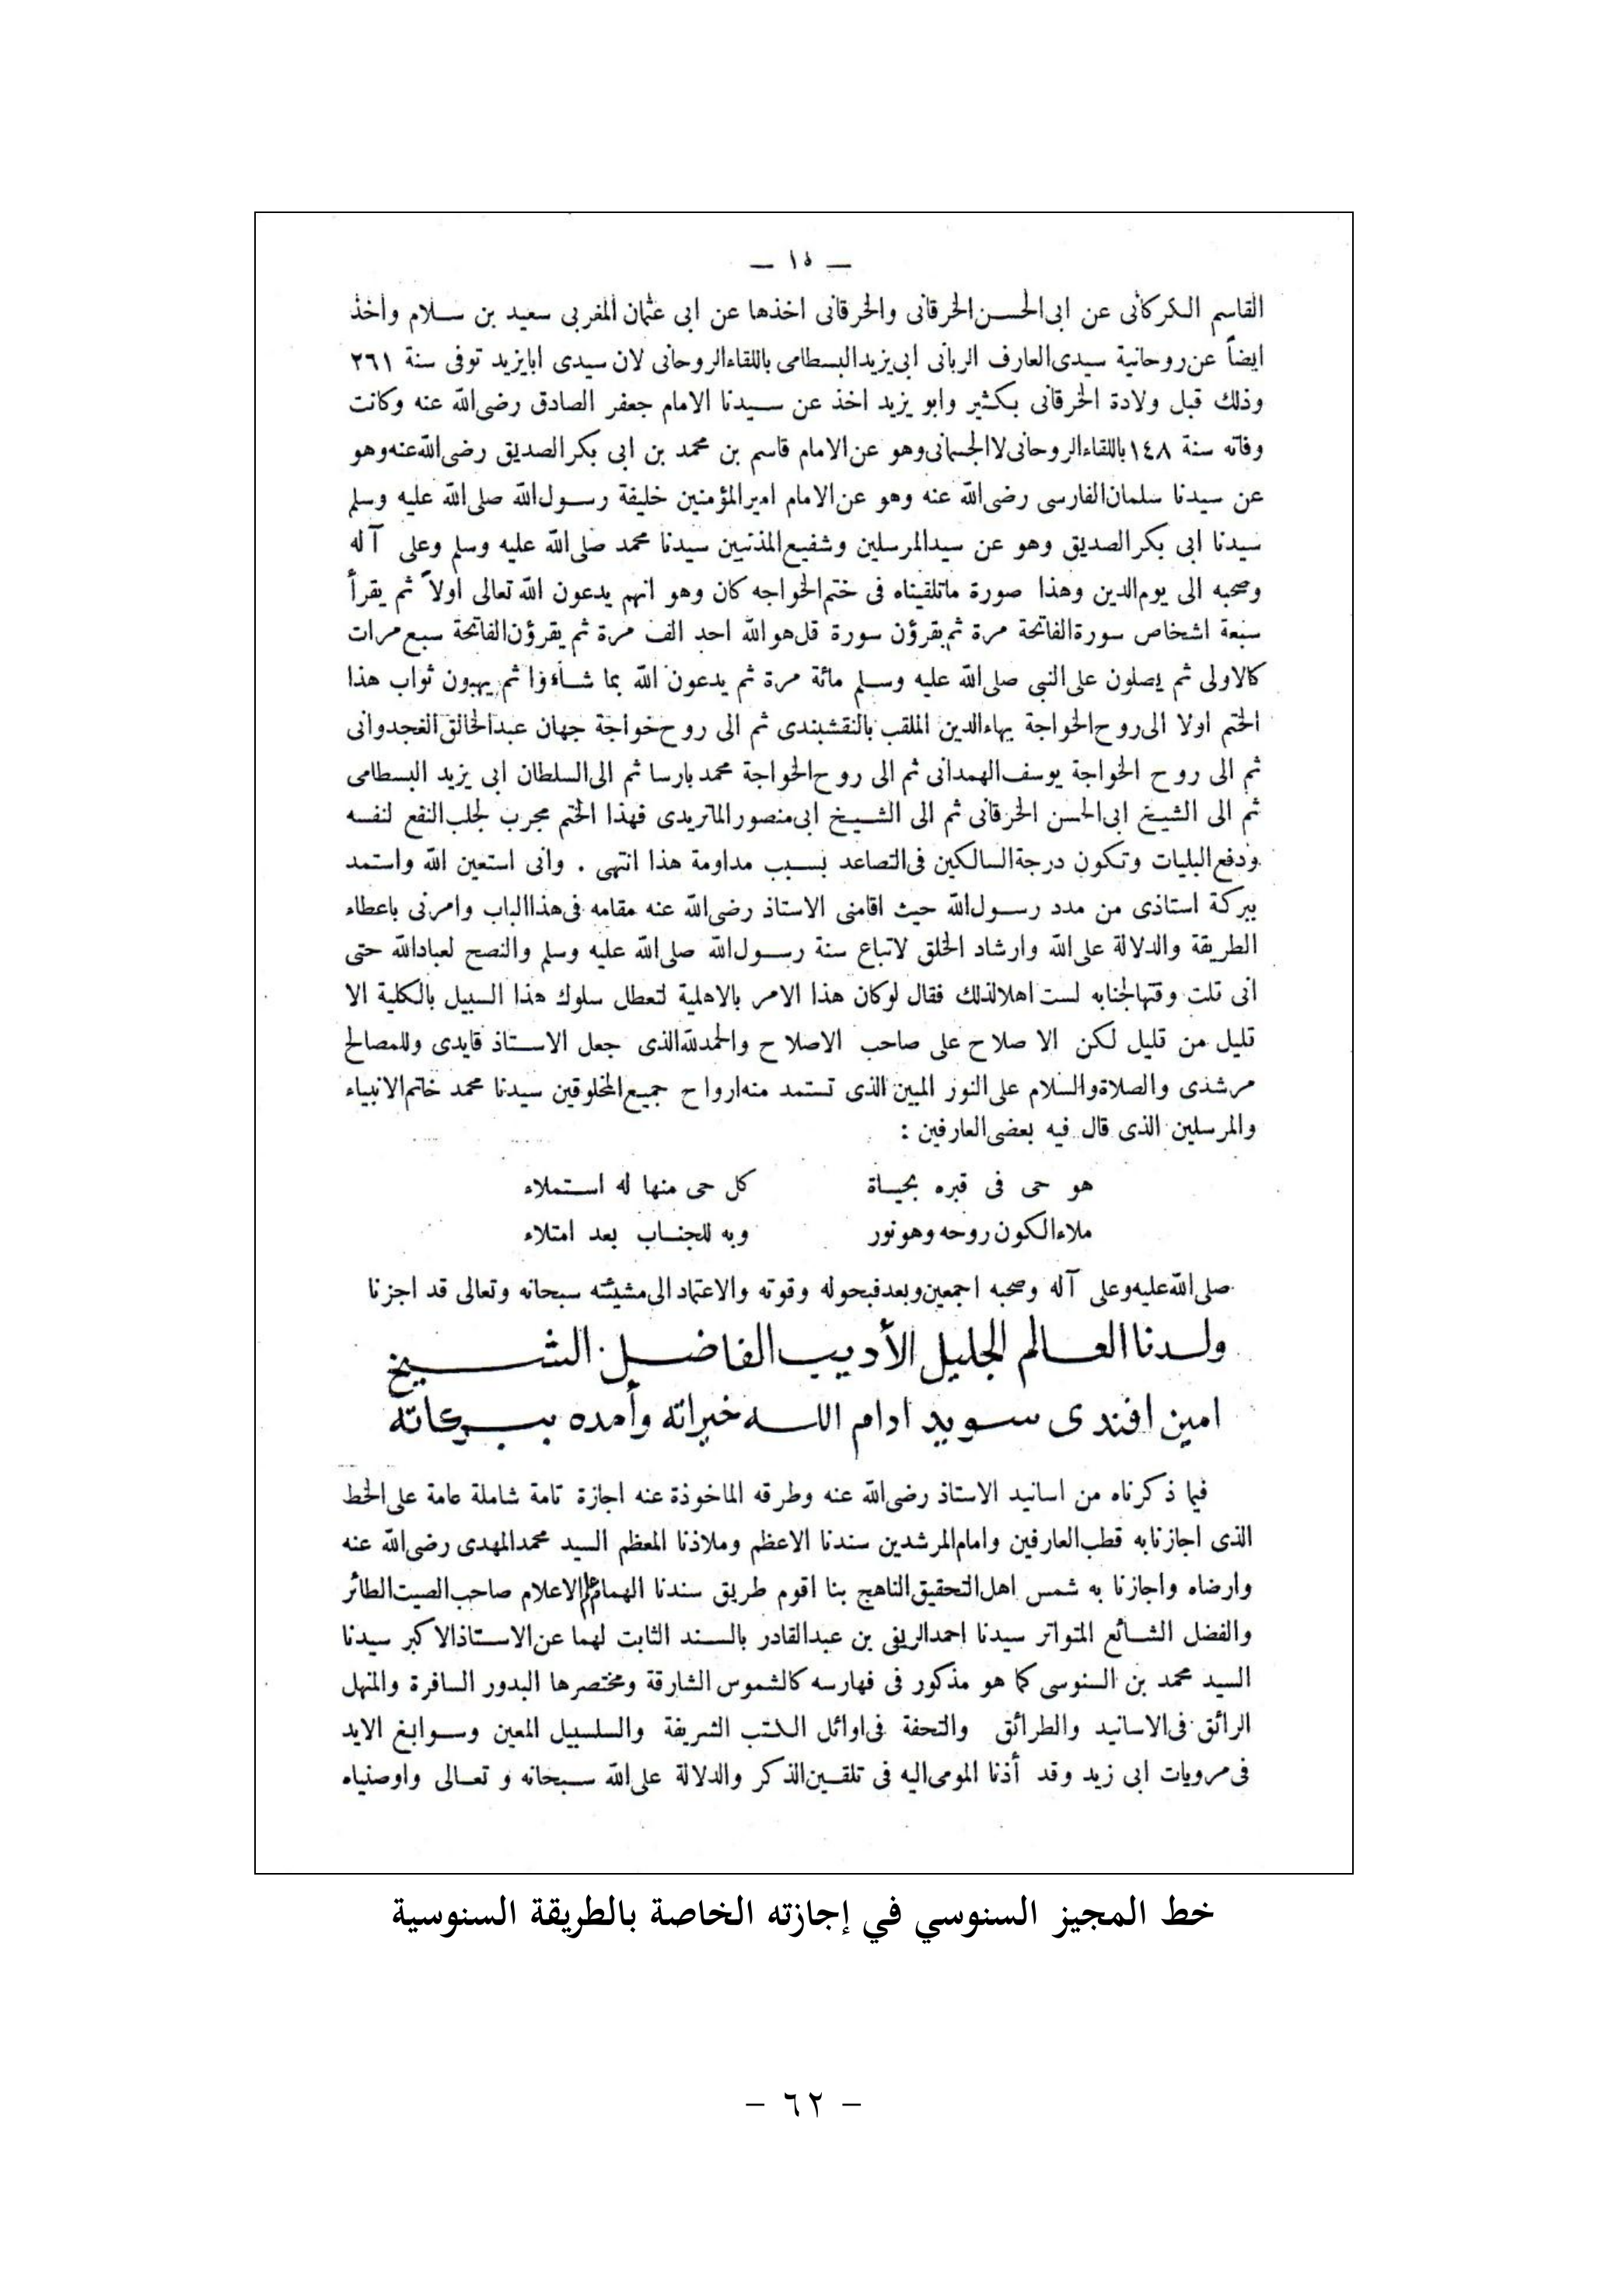 — ١٥ —
القاسم الكركانى عن ابى الحسن الخرقانى والخرقانى اخذها عن ابى عثمان المغربى سعيد بن سلام وأخذ
ايضاً عن روحانية سيدى العارف الربانى ابى يزيد البسطامى باللقاء الروحانى لان سيدى ابا يزيد توفى سنة ٢٦١
وذلك قبل ولادة الخرقانى بكثير وابو يزيد اخذ عن سيدنا الامام جعفر الصادق رضى الله عنه وكانت
وفاته سنة ١٤٨ باللقاء الروحانى لا الجسمانى وهو عن الامام قاسم بن محمد بن ابى بكر الصديق رضى الله عنه وهو
عن سيدنا سلمان الفارسى رضى الله عنه وهو عن الامام امير المؤمنين خليفة رسول الله صلى الله عليه وسلم
سيدنا ابى بكر الصديق وهو عن سيد المرسلين وشفيع المذنبين سيدنا محمد صلى الله عليه وسلم وعلى آله
وصحبه الى يوم الدين وهذا صورة ماتلقيناه فى ختم الخواجه كان وهو انهم يدعون الله تعالى اولاً ثم يقرأ
سبعة اشخاص سورة الفاتحة مرة ثم يقرؤن سورة قل هو الله احد الف مرة ثم يقرؤن الفاتحة سبع مرات
كالاولى ثم يصلون على النبى صلى الله عليه وسلم مائة مرة ثم يدعون الله بما شاءوا ثم يهبون ثواب هذا
الختم اولا الى روح الخواجة بهاء الدين الملقب بالنقشبندى ثم الى روح خواجة جهان عبد الخالق الغجدوانى
ثم الى روح الخواجة يوسف الهمدانى ثم الى روح الخواجة محمد بارسا ثم الى السلطان ابى يزيد البسطامى
ثم الى الشيخ ابى الحسن الخرقانى ثم الى الشيخ ابى منصور الماتريدى فهذا الختم مجرب لجلب النفع لنفسه
ودفع البليات وتكون درجة السالكين فى التصاعد بسبب مداومة هذا انتهى . وانى استعين الله واستمد
ببركة استاذى من مدد رسول الله حيث اقامنى الاستاذ رضى الله عنه مقامه فى هذا الباب وامرنى باعطاء
الطريقة والدلالة على الله وارشاد الخلق لاتباع سنة رسول الله صلى الله عليه وسلم والنصح لعباد الله حتى
انى قلت وقتها لجنابه لست اهلا لذلك فقال لو كان هذا الامر بالاهلية لتعطل سلوك هذا السبيل بالكلية الا
قليل من قليل لكن الاصلاح على صاحب الاصلاح والحمد لله الذى جعل الاستاذ قايدى وللمصالح
مرشدى والصلاة والسلام على النور المبين الذى تستمد منه ارواح جميع المخلوقين سيدنا محمد خاتم الانبياء
والمرسلين الذى قال فيه بعض العارفين :
هو حى فى قبره بحياة كل حى منها له استملاء
ملاء الكون روحه وهو نور وبه للجناب بعد امتلاء
صلى الله عليه وعلى آله وصحبه اجمعين وبعد فبحوله وقوته والاعتماد الى مشيئته سبحانه وتعالى قد اجزنا
ولدنا العالم الجليل الأديب الفاضل الشيخ
امين افندى سويد ادام الله خيراته وأمده ببركاته
فيما ذكرناه من اسانيد الاستاذ رضى الله عنه وطرقه الماخوذة عنه اجازة تامة شاملة عامة على الخط
الذى اجازنا به قطب العارفين وامام المرشدين سندنا الاعظم وملاذنا المعظم السيد محمد المهدى رضى الله عنه
وارضاه واجازنا به شمس اهل التحقيق الناهج بنا اقوم طريق سندنا الهمام علم الاعلام صاحب الصيت الطائر
والفضل الشائع المتواتر سيدنا احمد الريفى بن عبد القادر بالسند الثابت لهما عن الاستاذ الاكبر سيدنا
السيد محمد بن السنوسى كما هو مذكور فى فهارسه كالشموس الشارقة ومختصرها البدور السافرة والمنهل
الرائق فى الاسانيد والطرائق والتحفة فى اوائل الكتب الشريفة والسلسبيل المعين وسوابغ الايد
فى مرويات ابى زيد وقد أذنا المومى اليه فى تلقين الذكر والدلالة على الله سبحانه و تعالى واوصنياه
خط المجيز السنوسي في إجازته الخاصة بالطريقة السنوسية
– ٦٢ –